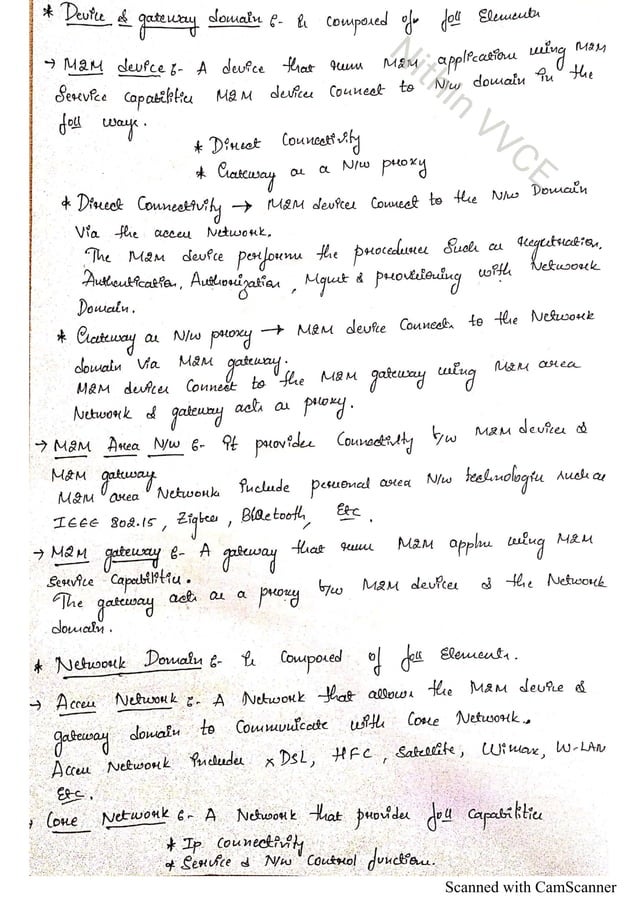 * Device & gateway domain :- is composed of foll Elements
→ M2M device :- A device that runs M2M application using M2M
Service Capabilities M2M devices Connect to N/w domain in the
foll ways.
* Direct Connectivity
* Gateway as a N/w proxy
* Direct Connectivity → M2M devices Connect to the N/w Domain
Via the access Network.
The M2M device performs the procedures Such as registration,
Authentication, Authorization, Mgmt & provisioning with Network
Domain.
* Gateway as N/w proxy → M2M device Connects to the Network
domain Via M2M gateway.
M2M devices Connect to the M2M gateway using M2M area
Network & gateway acts as proxy.
→ M2M Area N/w :- It provides Connectivity b/w M2M devices &
M2M gateway
M2M area Networks Include personal area N/w technologies such as
IEEE 802.15, Zigbee, Bluetooth, Etc.
→ M2M gateway :- A gateway that runs M2M applns using M2M
Service Capabilities.
The gateway acts as a proxy b/w M2M devices & the Network
domain.
* Network Domain :- is Composed of foll Elements.
→ Access Network :- A Network that allows the M2M device &
gateway domain to Communicate with Core Network.
Access Network Includes xDSL, HFC, Satellite, Wimax, W-LAN
Etc.
→ Core Network :- A Network that provides foll Capabilities
* Ip Connectivity
* Service & N/w Control function.
Nithin VVCE
Scanned with CamScanner